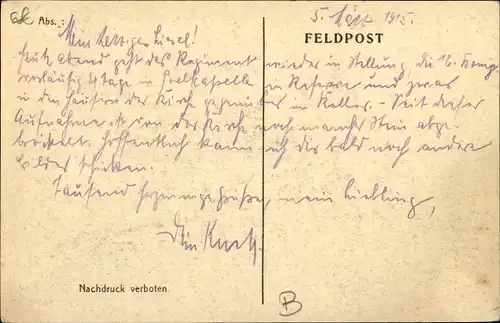 Abs.:
5. März 1915.
FELDPOST
Mein herziges Liesel!
Heute Abend geht das Regiment wieder in Stellung, die 12. Komp.
vorläufig 4 Tage in Poelkapelle in Reserve und zwar
in den Häusern der Kirche gegenüber im Keller. - Seit dieser
Aufnahme ist von der Kirche noch mancher Stein abge-
bröckelt. Hoffentlich kann ich dir bald noch andere
Bilder schicken.
Tausend herzinnige Grüße, mein Liebling,
Dein Kurt.
Nachdruck verboten.
B